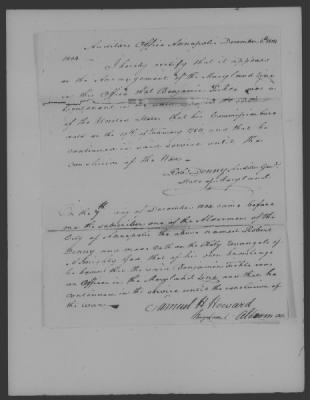 Auditors Office Annapolis December 6th 1804
I hereby certify that it appears
on the Arrangement of the Maryland Line
in this Office that Benjamin Fickle was a
Lieutenant in the
of the United States, that his Commission bears
date on the 19th of January 1780, and that he
continued in said service until the
conclusion of the War.
Robt Denny Auditor Genl
State of Maryland
On the 7th day of December 1804 came before
me the subscriber one of the Aldermen of the
City of Annapolis the above named Robert
Denny and made Oath on the Holy Evangels of
Almighty God that of his own knowledge
he knows that the said Benjamin Fickle was
an Officer in the Maryland Line and that he
continued in the service until the conclusion of
the war
Samuel H Howard
Alderman